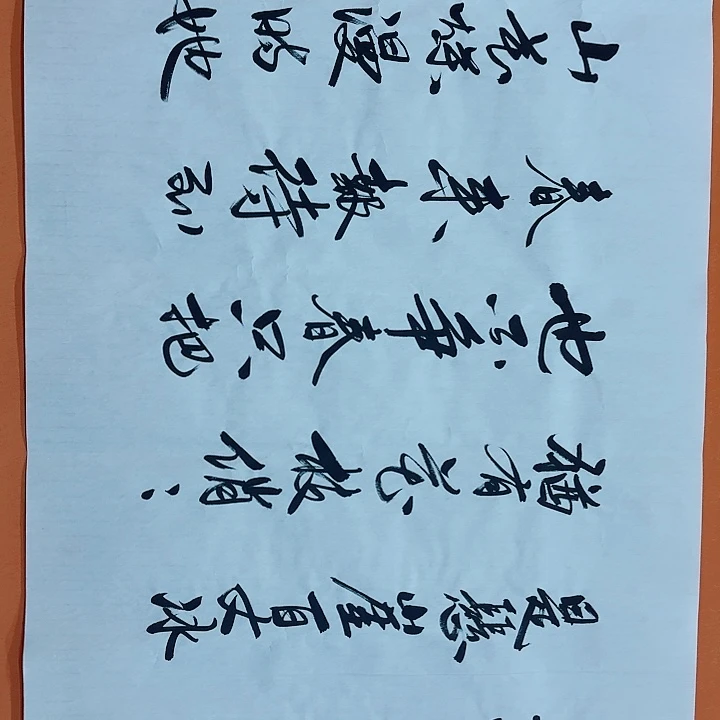 是懸崖百丈冰
猶有花枝俏〻
也不争春只把
春来報待到
山花爛漫时她